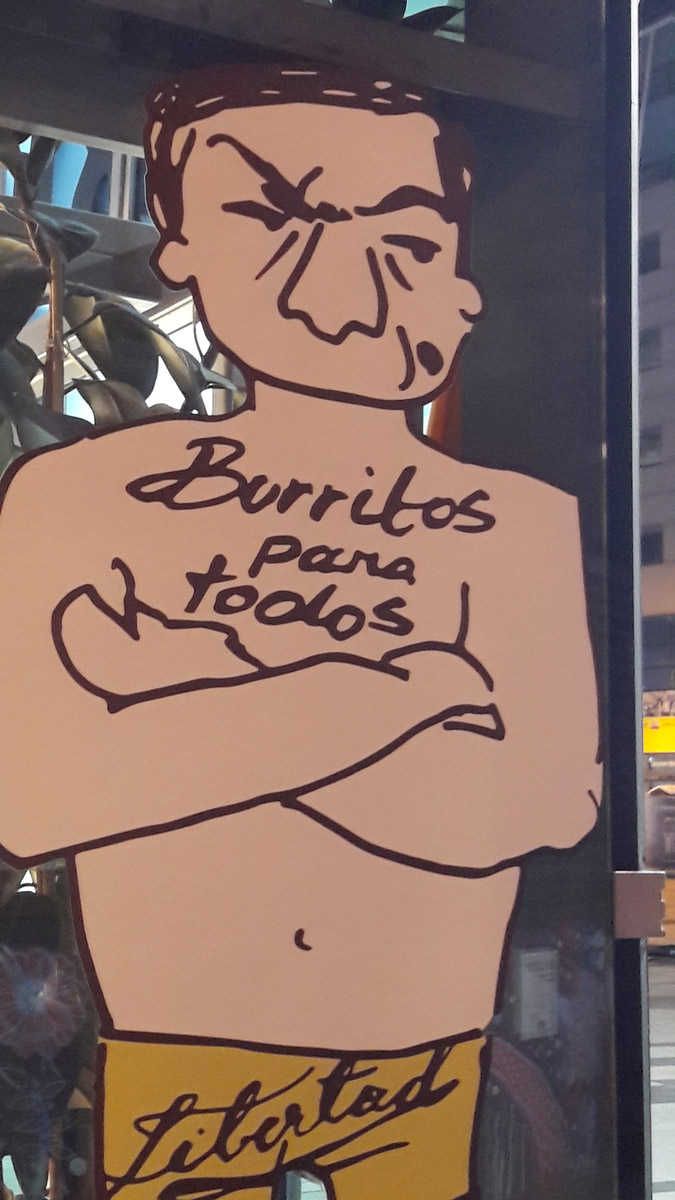 Burritos
para
todos
Libertad